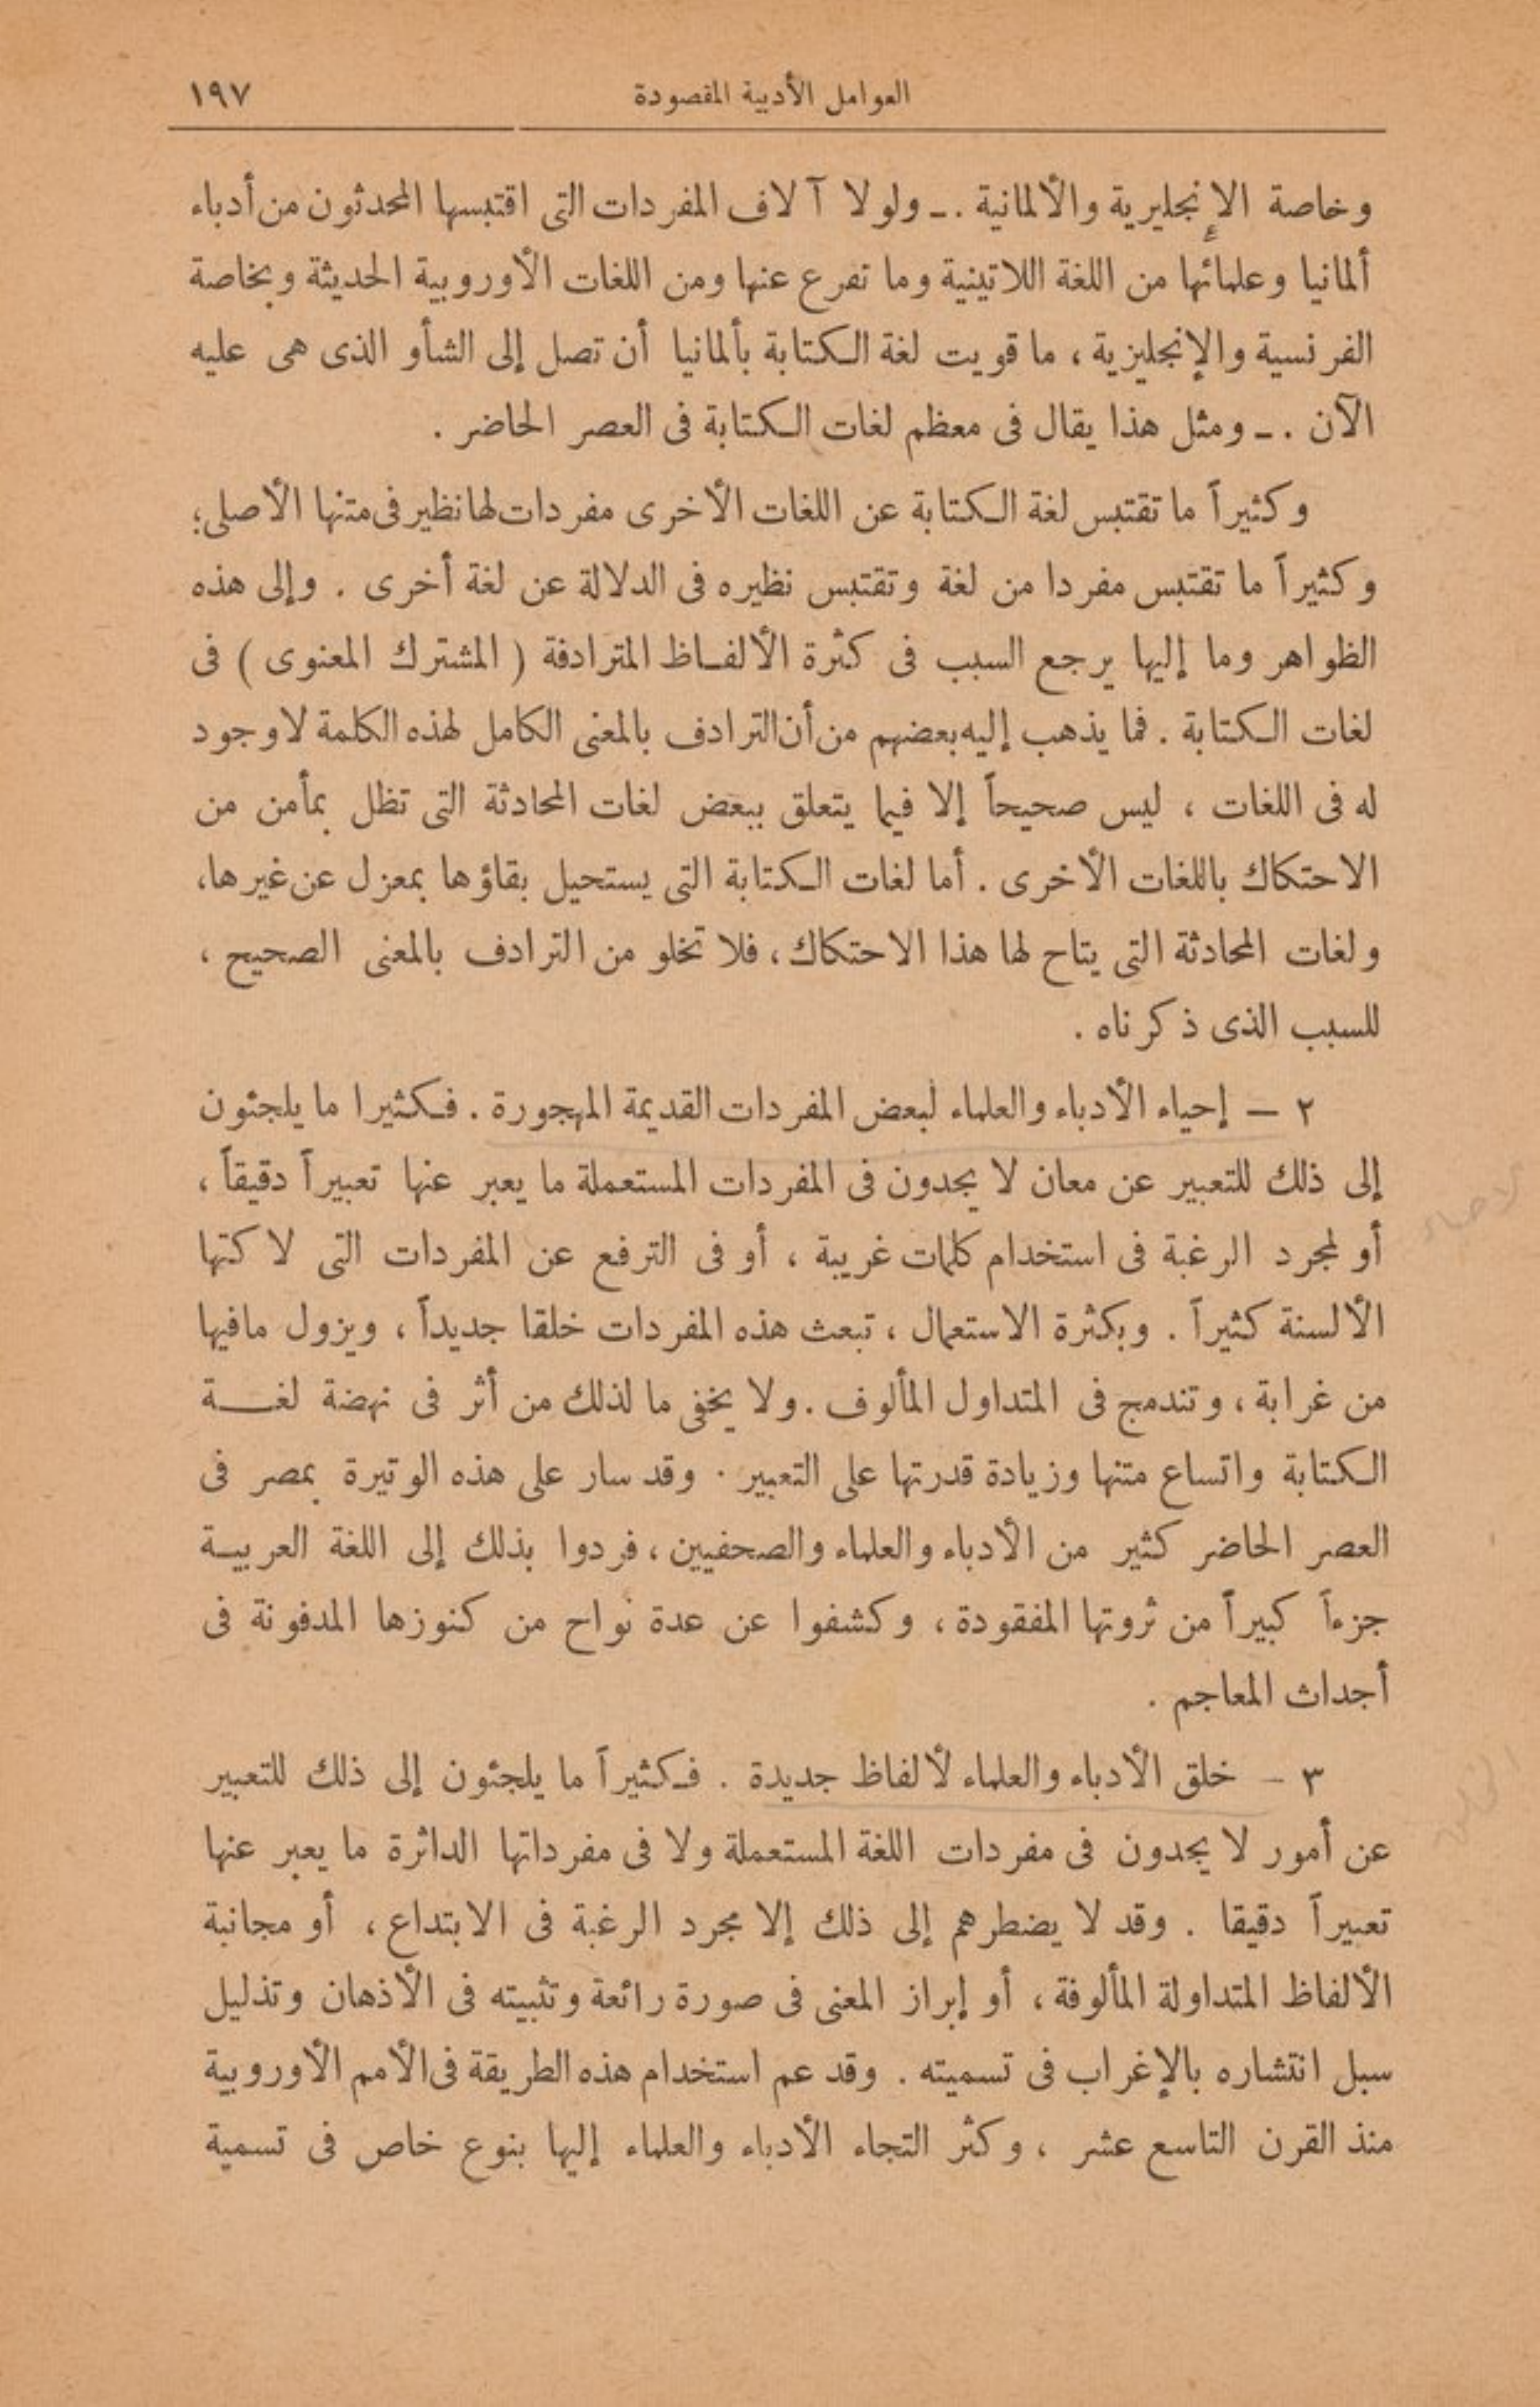 العوامل الأدبية المقصودة ١٩٧
وخاصة الإنجليرية والألمانية .ـ ولولا آلاف المفردات التى اقتبسها المحدثون من أدباء
ألمانيا وعلمائها من اللغة اللاتينية وما تفرع عنها ومن اللغات الأوروبية الحديثة وبخاصة
الفرنسية والإنجليزية ، ما قويت لغة الكتابة بألمانيا أن تصل إلى الشأو الذى هى عليه
الآن .ـ ومثل هذا يقال فى معظم لغات الكتابة فى العصر الحاضر .
وكثيراً ما تقتبس لغة الكتابة عن اللغات الأخرى مفردات لها نظير فى متنها الأصلى؛
وكثيراً ما تقتبس مفردا من لغة وتقتبس نظيره فى الدلالة عن لغة أخرى . وإلى هذه
الظواهر وما إليها يرجع السبب فى كثرة الألفـاظ المترادفة ( المشترك المعنوى ) فى
لغات الكتابة . فما يذهب إليه بعضهم من أن الترادف بالمعنى الكامل لهذه الكلمة لا وجود
له فى اللغات ، ليس صحيحاً إلا فيما يتعلق ببعض لغات المحادثة التى تظل بمأمن من
الاحتكاك باللغات الأخرى . أما لغات الكتابة التى يستحيل بقاؤها بمعزل عن غيرها،
ولغات المحادثة التى يتاح لها هذا الاحتكاك، فلا تخلو من الترادف بالمعنى الصحيح ،
للسبب الذى ذكرناه .
٢ — إحياء الأدباء والعلماء لبعض المفردات القديمة المهجورة . فكثيرا ما يلجئون
إلى ذلك للتعبير عن معان لا يجدون فى المفردات المستعملة ما يعبر عنها تعبيراً دقيقاً ،
أو لمجرد الرغبة فى استخدام كلمات غريبة ، أو فى الترفع عن المفردات التى لاكتها
الألسنة كثيراً . وبكثرة الاستعمال ، تبعث هذه المفردات خلقا جديداً ، ويزول مافيها
من غرابة ، وتندمج فى المتداول المألوف . ولا يخفى ما لذلك من أثر فى نهضة لغــة
الكتابة واتساع متنها وزيادة قدرتها على التعبير . وقد سار على هذه الوتيرة بمصر فى
العصر الحاضر كثير من الأدباء والعلماء والصحفيين ، فردوا بذلك إلى اللغة العربيـة
جزءاً كبيراً من ثروتها المفقودة ، وكشفوا عن عدة نواح من كنوزها المدفونة فى
أجداث المعاجم .
٣ - خلق الأدباء والعلماء لألفاظ جديدة . فكثيراً ما يلجئون إلى ذلك للتعبير
عن أمور لا يجدون فى مفردات اللغة المستعملة ولا فى مفرداتها الداثرة ما يعبر عنها
تعبيراً دقيقا . وقد لا يضطرهم إلى ذلك إلا مجرد الرغبة فى الابتداع ، أو مجانبة
الألفاظ المتداولة المألوفة ، أو إبراز المعنى فى صورة رائعة وتثبيته فى الأذهان وتذليل
سبل انتشاره بالإغراب فى تسميته . وقد عم استخدام هذه الطريقة فى الأمم الأوروبية
منذ القرن التاسع عشر ، وكثر التجاء الأدباء والعلماء إليها بنوع خاص فى تسمية